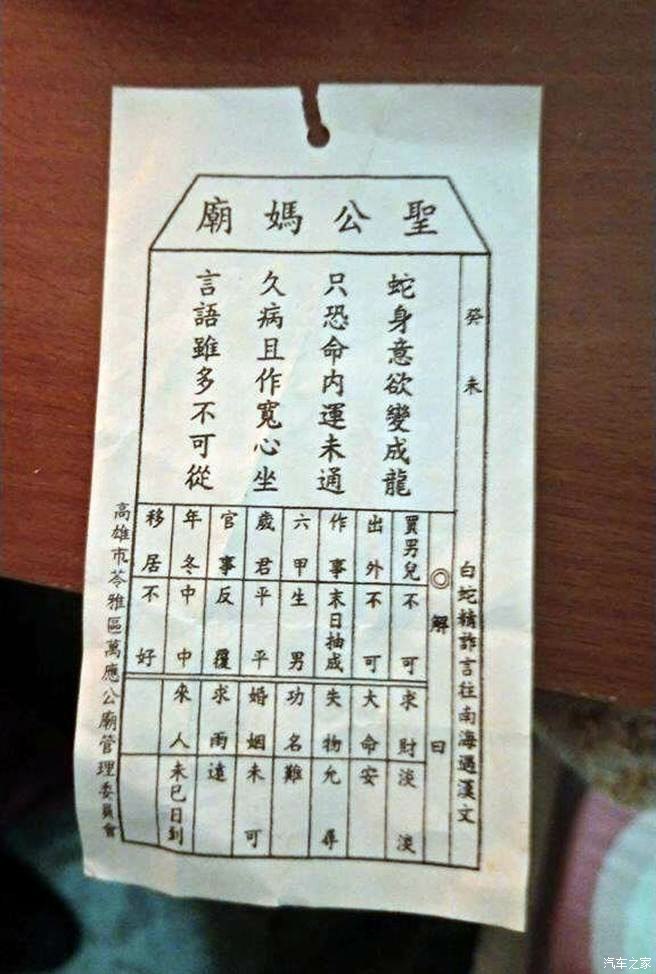 聖公媽廟
癸未
白蛇精詐言往南海遇漢文
蛇身意欲變成龍
只恐命內運未通
久病且作寬心坐
言語雖多不可從
◎解曰
買男兒 不可 求財 淡淡
出外 不可 大命 安
作事 末日抽成 失物 允尋
六甲 生男 功名 難
歲君 平平 婚姻 未可
官事 反覆 求雨 遠
年冬 中中 來人 未已日到
移居 不好
高雄市苓雅區萬應公廟管理委員會
汽车之家